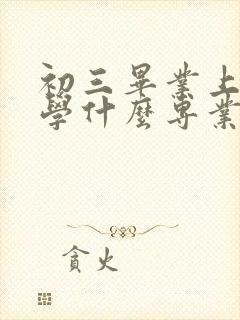 初三畢業上
學什麼專業
貪火